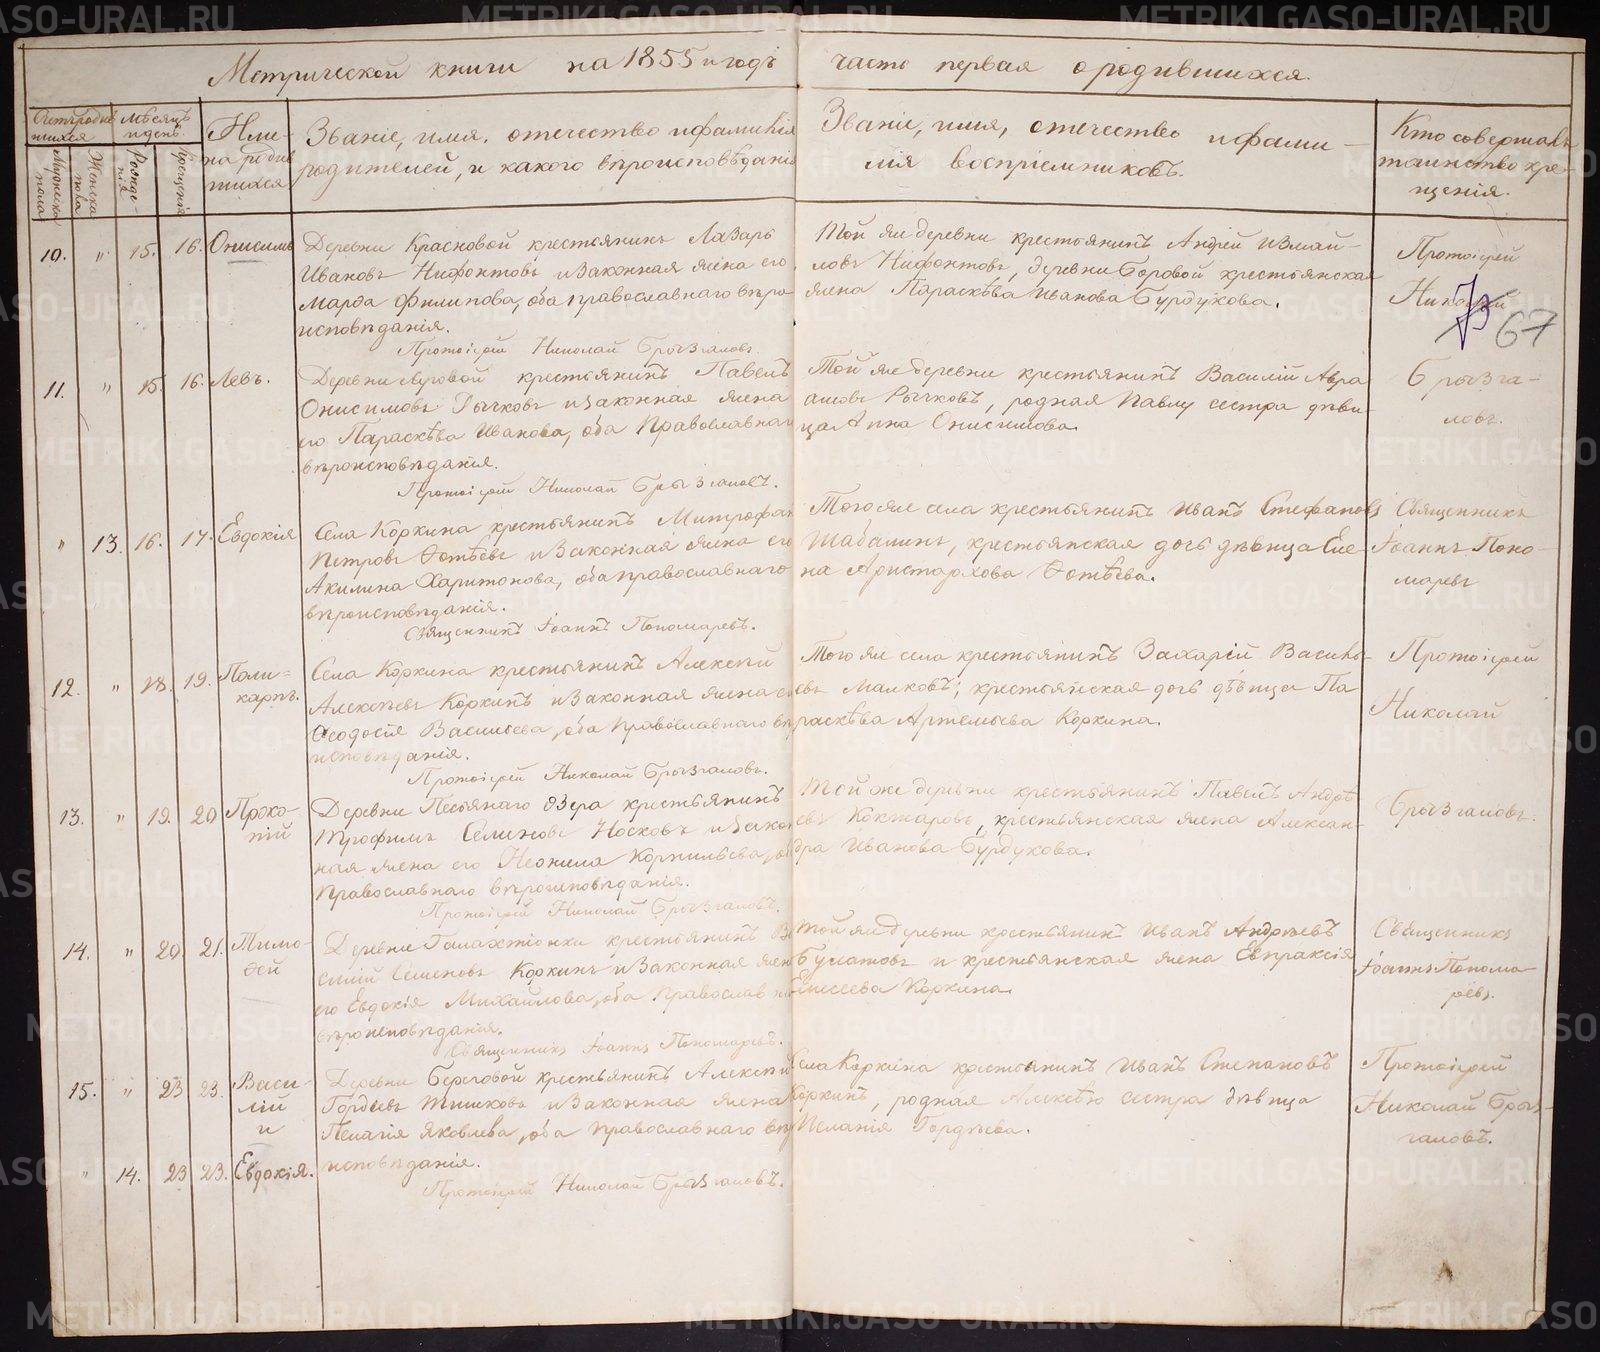 Метрической книги на 1855 й годъ часть первая о родившихся.
Счетъ родив
шихся
Мужеска
пола
Женска
пола
Мѣсяцъ
и день
Рожде-
нія
Крещенія
Име-
на родив
шихся
Званіе, имя, отечество и фамилія
родителей, и какого вѣроисповѣданія
Званіе, имя, отечество и фами-
лія воспріемниковъ.
Кто совершалъ
таинство кре-
щенія.
10. " 15. 16. Онисимъ
Деревни Красновой крестьянинъ Лазарь
Ивановъ Нифонтовъ и законная жена его
Марѳа Филипова, оба православнаго вѣро
исповѣданія.
Протоіерей Николай Брызгаловъ
Той же деревни крестьянинъ Андрей Измай-
ловъ Нифонтовъ, деревни Боровой крестьянская
жена Параскѣва Иванова Бурдукова.
Протоіерей
Николай
67
11. " 15. 16. Левъ.
крестьянинъ Павелъ
Онисимовъ Рычковъ и законная жена
его Параскѣва Иванова, оба Православнаго
вѣроисповѣданія.
Протоіерей Николай Брызгаловъ.
Той же деревни крестьянинъ Василій Авра
амовъ Рычковъ, родная Павлу сестра дѣви-
ца Анна Онисимова.
Брызга-
ловъ.
" 13. 16. 17. Евдокія
Села Коркина крестьянинъ Митрофанъ
Петровъ Ѳотѣевъ и законная жена его
Акилина Харитонова, оба православнаго
вѣроисповѣданія.
Священникъ Іоаннъ Пономаревъ.
Того же села крестьянинъ Иванъ Стефановъ
Шабалинъ, крестьянская дочь дѣвица Еле-
на Аристархова Ѳотѣева.
Священникъ
Іоаннъ Поно-
маревъ
12. " 18. 19. Поли-
карпъ.
Села Коркина крестьянинъ Алексѣй
Алексѣевъ Коркинъ и законная жена его
Ѳеодосія Васильева, оба Православнаго вѣро
исповѣданія.
Протоіерей Николай Брызгаловъ.
Того же села крестьянинъ Захарій Василь-
евъ Малковъ, крестьянская дочь дѣвица Па
раскѣва Артемьева Коркина.
Протоіерей
Николай
13. " 19. 20 Проко-
пій
Деревни Песьянаго озера крестьянинъ
Трофимъ Семеновъ Носковъ и закон
ная жена его Неонила Корнильева, оба
Православнаго вѣроисповѣданія.
Протоіерей Николай Брызгаловъ.
Той же деревни крестьянинъ Павелъ Андрѣ
евъ Кокшаровъ, крестьянская жена Алексан-
дра Иванова Бурдукова.
Брызгаловъ.
14. " 20. 21. Тимо-
ѳей
Деревни крестьянинъ Ва
силій Семеновъ Коркинъ и законная жена
его Евдокія Михайлова, оба Православнаго
вѣроисповѣданія.
Священникъ Іоаннъ Пономаревъ.
Той же деревни крестьянинъ Иванъ Андрѣевъ
Булатовъ и крестьянская жена Евпраксія
Елисеева Коркина.
Священникъ
Іоаннъ Понома-
ревъ.
15. " 23 23. Васи-
лій
и
Деревни Береговой крестьянинъ Алексѣй
Гордѣевъ Тишковъ и законная жена
Пелагія Яковлева, оба православнаго вѣро
исповѣданія.
Протоіерей Николай Брызгаловъ.
Села Коркина крестьянинъ Иванъ Степановъ
Коркинъ, родная Алексѣю сестра дѣвица
Меланія Гордѣева.
Протоіерей
Николай Брыз-
галовъ.
" 14. 23 23. Евдокія.
METRIKI.GASO-URAL.RU